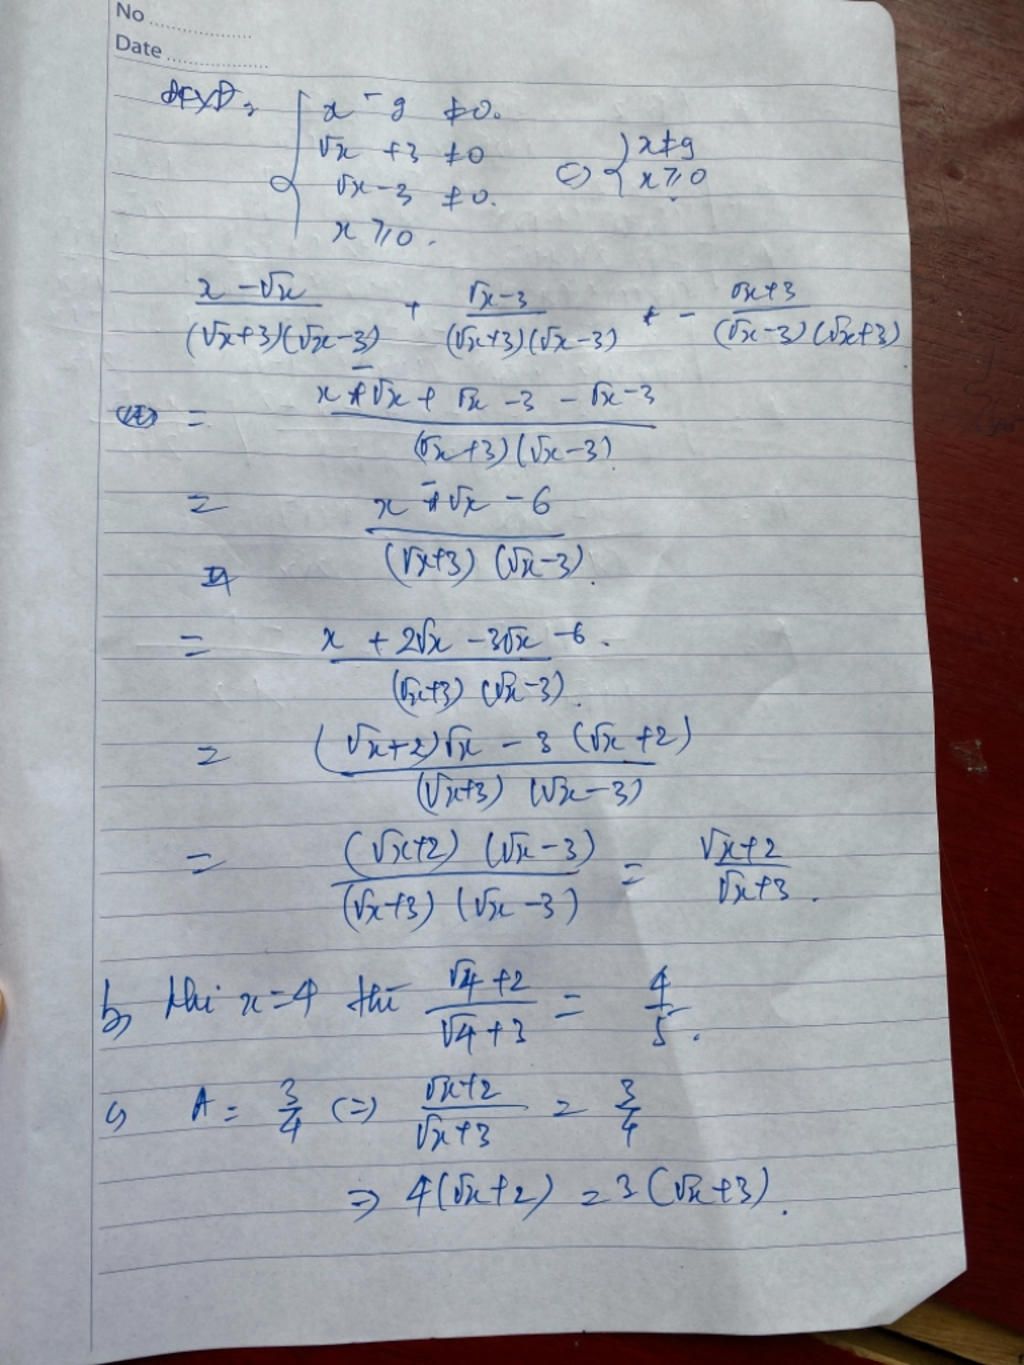 No ..................
Date ..................
ĐKXĐ:
x - 9 ≠ 0.
√x + 3 ≠ 0
√x - 3 ≠ 0.
x ≥ 0.
<=> { x ≠ 9
x ≥ 0
(x - √x)/((√x+3)(√x-3)) + (√x-3)/((√x+3)(√x-3)) - (√x+3)/((√x-3)(√x+3))
= (x - √x + √x - 3 - √x - 3)/((√x+3)(√x-3))
= (x - √x - 6)/((√x+3)(√x-3)).
= (x + 2√x - 3√x - 6)/((√x+3)(√x-3)).
= ((√x+2)√x - 3(√x+2))/((√x+3)(√x-3))
= ((√x+2)(√x-3))/((√x+3)(√x-3)) = (√x+2)/(√x+3).
b, Khi x=4 thì (√4+2)/(√4+3) = 4/5.
c, A = 3/4 (=) (√x+2)/(√x+3) = 3/4
=> 4(√x+2) = 3(√x+3).